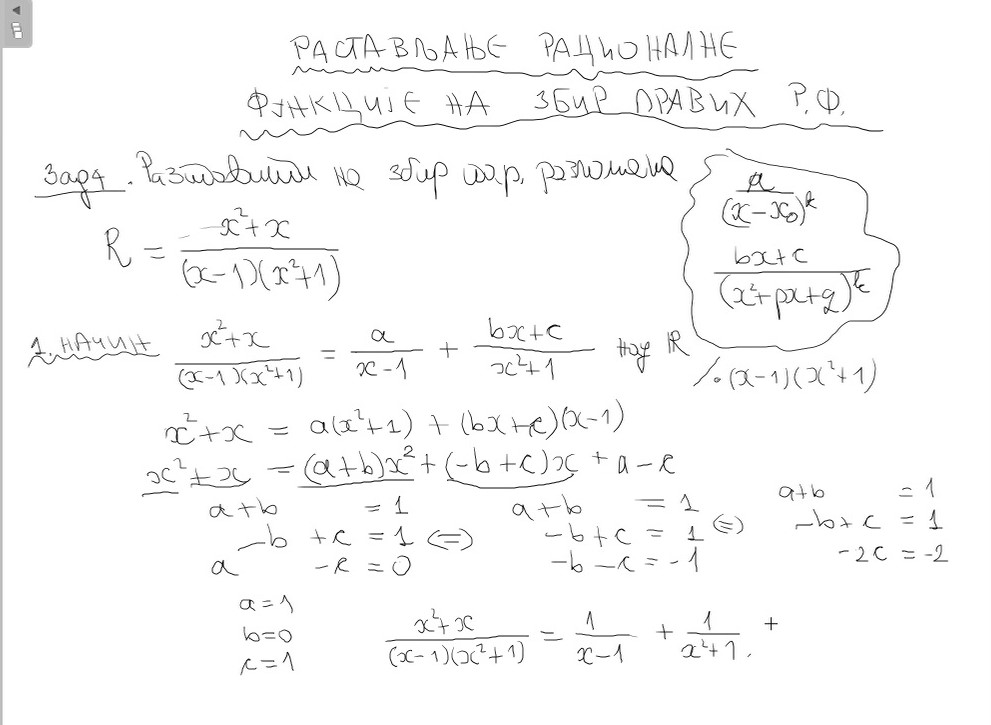 РАСТАВЉАЊЕ РАЦИОНАЛНЕ
ФУНКЦИЈЕ НА ЗБИР ПРАВИХ Р.Ф.
Зад 4. Раставити на збир разломака
R = (x²+x)/((x-1)(x²+1))
a/(x-x₀)ᵏ
(bx+c)/(x²+px+q)ᵏ
1. НАЧИН (x²+x)/((x-1)(x²+1)) = a/(x-1) + (bx+c)/(x²+1) над ℝ /·(x-1)(x²+1)
x²+x = a(x²+1) + (bx+c)(x-1)
x²+x = (a+b)x² + (-b+c)x + a-c
a+b = 1
-b+c = 1 (=)
a -c = 0
a+b = 1
-b+c = 1 (=)
-b-c = -1
a+b = 1
-b+c = 1
-2c = -2
a=1
b=0
c=1
(x²+x)/((x-1)(x²+1)) = 1/(x-1) + 1/(x²+1). +